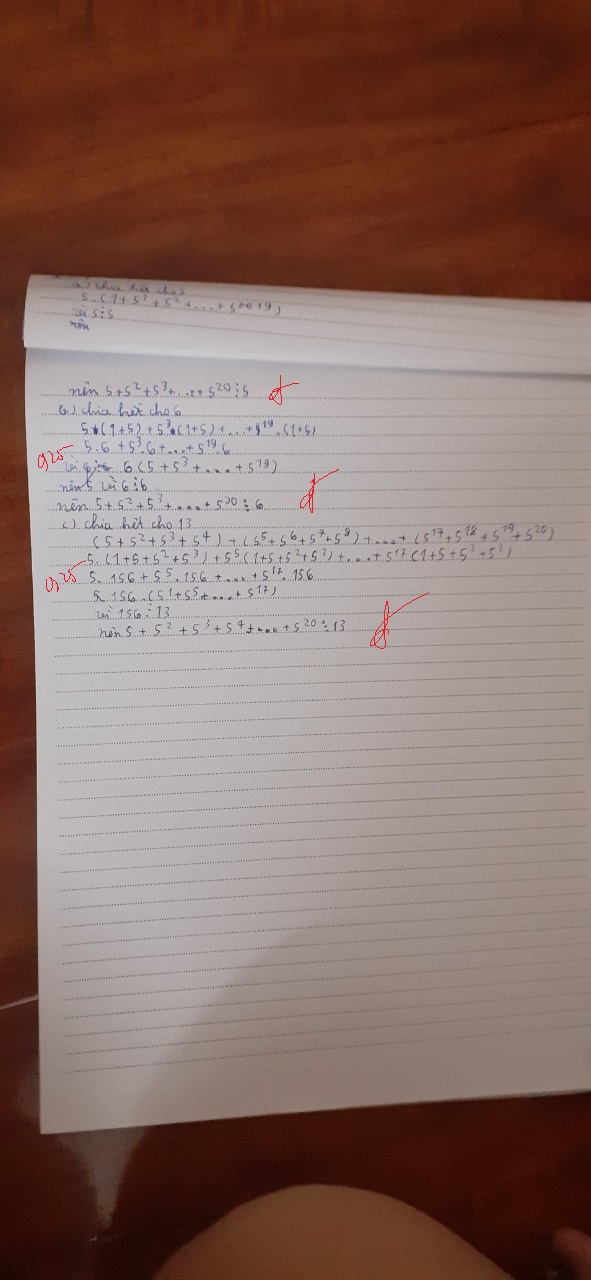 a) chia hết cho 5
5.(1+5¹+5²+...+5
vì 5⋮5
nên
nên 5+5²+5³+...+5²⁰⋮5
b) chia hết cho 6
5.(1+5)+5³.(1+5)+...+5¹⁹.(1+5)
5.6+5³.6+...+5¹⁹.6
0,25
6(5+5³+....+5¹⁹)
nên 5 vì 6⋮6
nên 5+5²+5³+....+5²⁰⋮6
c) chia hết cho 13
(5+5²+5³+5⁴)+(5⁵+5⁶+5⁷+5⁸)+...+(5¹⁷+5¹⁸+5¹⁹+5²⁰)
5.(1+5+5²+5³)+5⁵(1+5+5²+5³)+...+5¹⁷(1+5+5²+5³)
0,25 5.156+5⁵.156+....+5¹⁷.156
156.(5¹+5⁵+....+5¹⁷)
vì 156⋮13
nên 5+5²+5³+5⁴+....+5²⁰⋮13